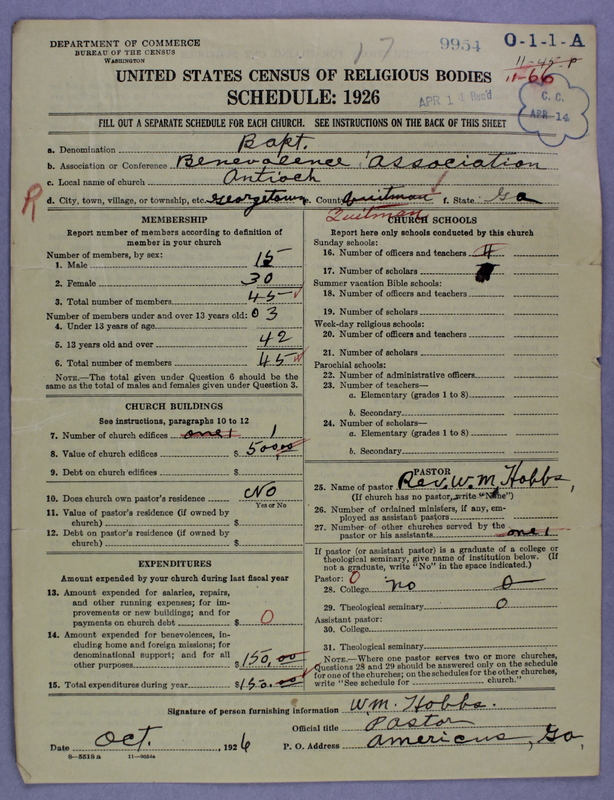 DEPARTMENT OF COMMERCE
BUREAU OF THE CENSUS
WASHINGTON
17
9954
O-1-1-A
11-45-P
11-66
UNITED STATES CENSUS OF RELIGIOUS BODIES
SCHEDULE: 1926
APR 14 Rec'd
C. C.
APR 14
FILL OUT A SEPARATE SCHEDULE FOR EACH CHURCH. SEE INSTRUCTIONS ON THE BACK OF THIS SHEET
a. Denomination Bapt.
b. Association or Conference Benevolence Association
c. Local name of church Antioch
R
d. City, town, village, or township, etc. Georgetown e. County Quitman f. State Ga
Quitman
MEMBERSHIP
Report number of members according to definition of
member in your church
Number of members, by sex:
1. Male 15
2. Female 30
3. Total number of members 45
Number of members under and over 13 years old:
4. Under 13 years of age 03
5. 13 years old and over 42
6. Total number of members 45
NOTE.—The total given under Question 6 should be the
same as the total of males and females given under Question 3.
CHURCH BUILDINGS
See instructions, paragraphs 10 to 12
7. Number of church edifices one 1 1
8. Value of church edifices $ 500.00
9. Debt on church edifices $
10. Does church own pastor's residence No
Yes or No
11. Value of pastor's residence (if owned by
church) $
12. Debt on pastor's residence (if owned by
church) $
EXPENDITURES
Amount expended by your church during last fiscal year
13. Amount expended for salaries, repairs,
and other running expenses; for im-
provements or new buildings; and for
payments on church debt $ 0
14. Amount expended for benevolences, in-
cluding home and foreign missions; for
denominational support; and for all
other purposes $150.00
15. Total expenditures during year $150.00
CHURCH SCHOOLS
Report here only schools conducted by this church
Sunday schools:
16. Number of officers and teachers 4
17. Number of scholars
Summer vacation Bible schools:
18. Number of officers and teachers
19. Number of scholars
Week-day religious schools:
20. Number of officers and teachers
21. Number of scholars
Parochial schools:
22. Number of administrative officers
23. Number of teachers—
a. Elementary (grades 1 to 8)
b. Secondary
24. Number of scholars—
a. Elementary (grades 1 to 8)
b. Secondary
PASTOR
25. Name of pastor Rev. W. M. Hobbs,
(If church has no pastor, write "None")
26. Number of ordained ministers, if any, em-
ployed as assistant pastors
27. Number of other churches served by the
pastor or his assistants one 1
If pastor (or assistant pastor) is a graduate of a college or
theological seminary, give name of institution below. (If
not a graduate, write "No" in the space indicated.)
Pastor: 0
28. College no 0
29. Theological seminary 0
Assistant pastor:
30. College
31. Theological seminary
NOTE.—Where one pastor serves two or more churches,
Questions 28 and 29 should be answered only on the schedule
for one of the churches; on the schedules for the other churches,
write "See schedule for church."
Signature of person furnishing information W M. Hobbs.
Official title Pastor
Date Oct. , 1926 P. O. Address Americus, Ga,
8-5518a 11-9054a